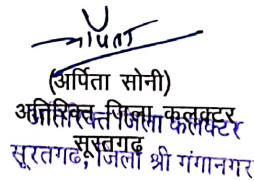 अर्पिता
(अर्पिता सोनी)
अतिरिक्त जिला कलक्टर
सूरतगढ़
अतिरिक्त जिला कलेक्टर
सूरतगढ, जिला श्री गंगानगर